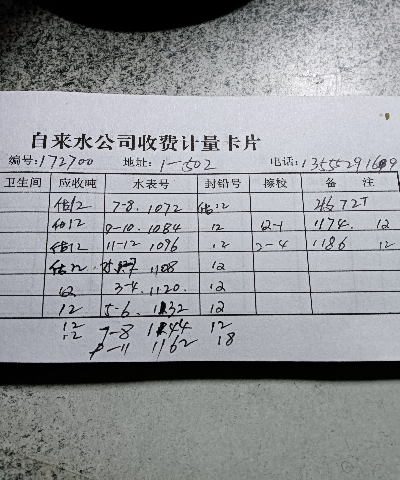 自来水公司收费计量卡片
编号:172700 地址: 1-502 电话:
卫生间 应收吨 水表号 封铅号 擦校 备 注
估12 7-8. 1072 估12
估12 9-10. 1084 12 12-1 1174. 12
估12 11-12 1096 12 2-4 1186 12
1108 12
12 3-4. 1120. 12
12 5-6. 1132 12
12 7-8 1144 12
12 9-11 1162 18